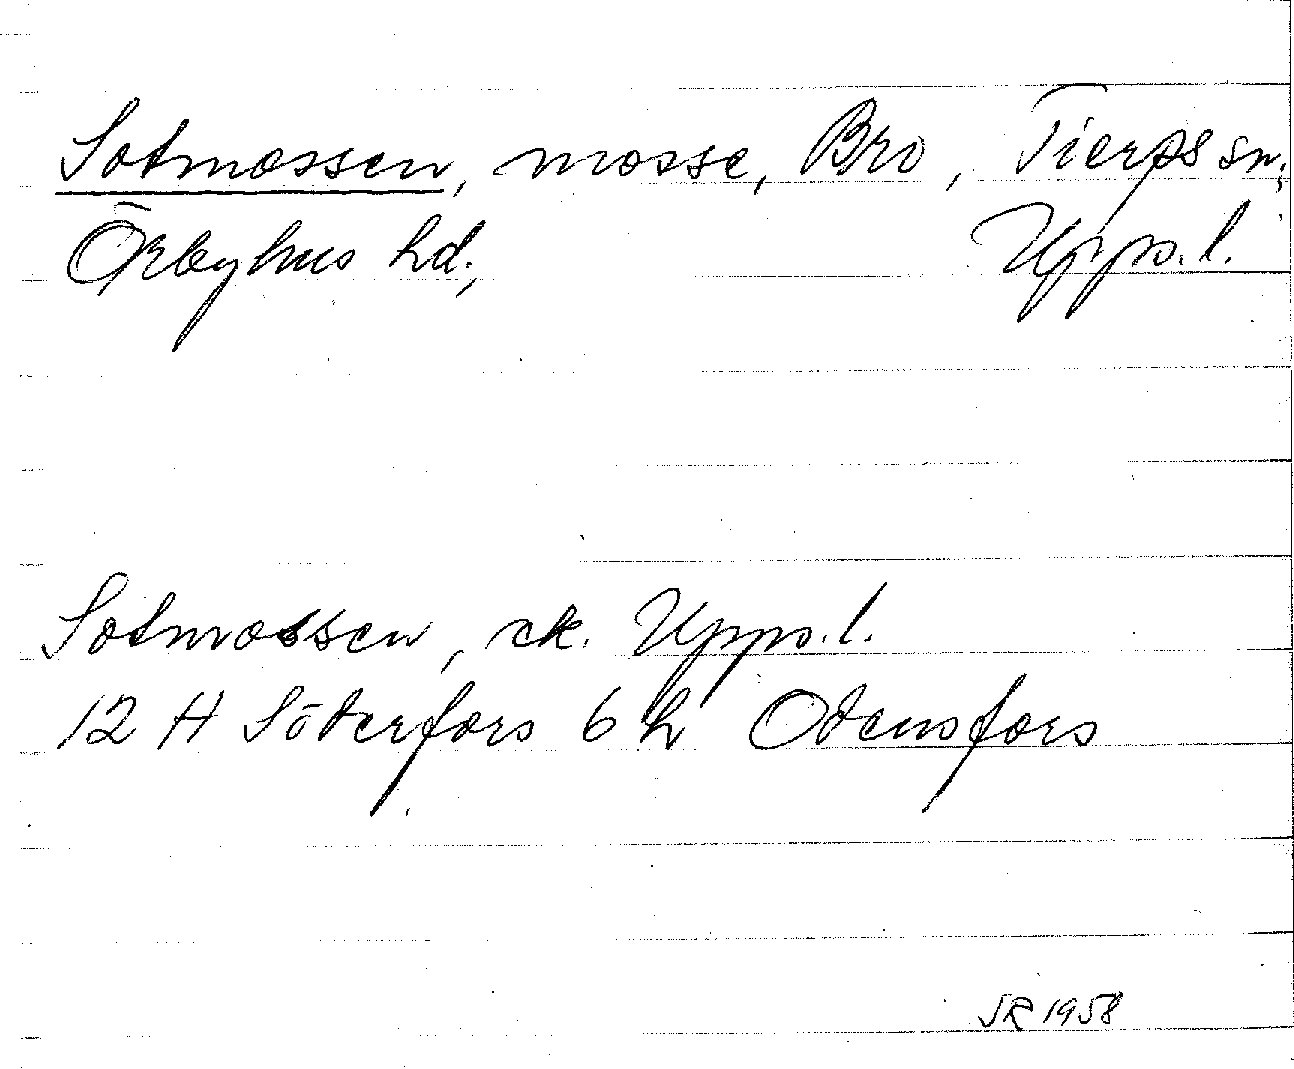 Sotmossen, mosse, Bro, Tierps sn,
Örbyhus hd., Upps. l.
Sotmossen, ek. Upps. l.
12 H Söderfors 6 h Odensfors
SR 1958